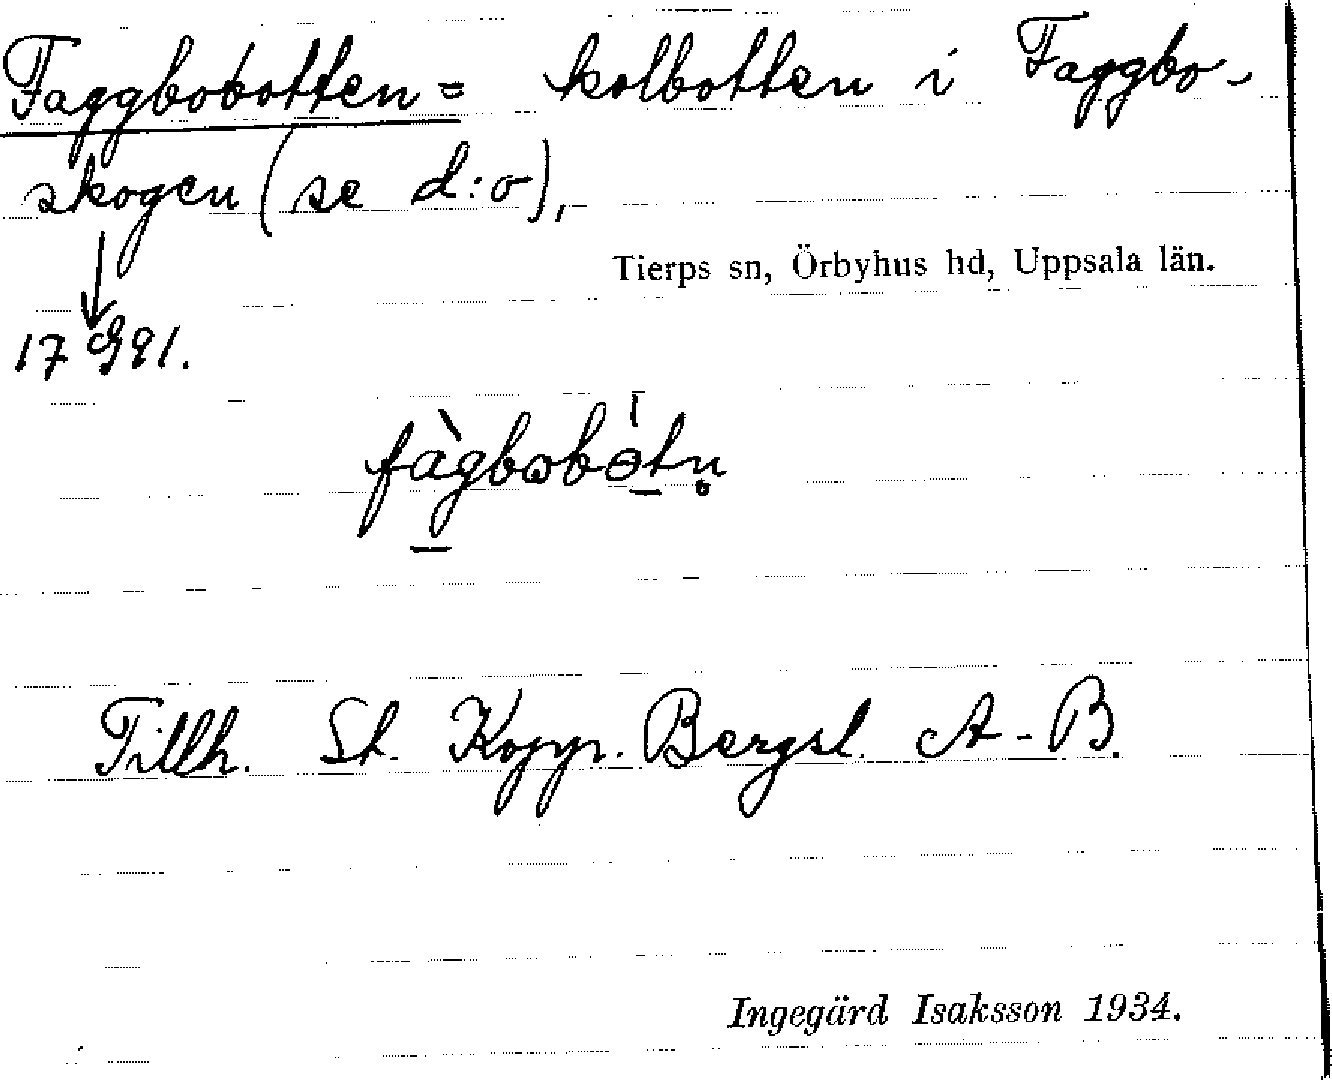 Faggbobotten = kolbotten i Faggbo-
skogen (se d:o),
Tierps sn, Örbyhus hd, Uppsala län.
17
fàgbobótn̥
Tillh. St. Kopp. Bergsl. A-B.
Ingegärd Isaksson 1934.